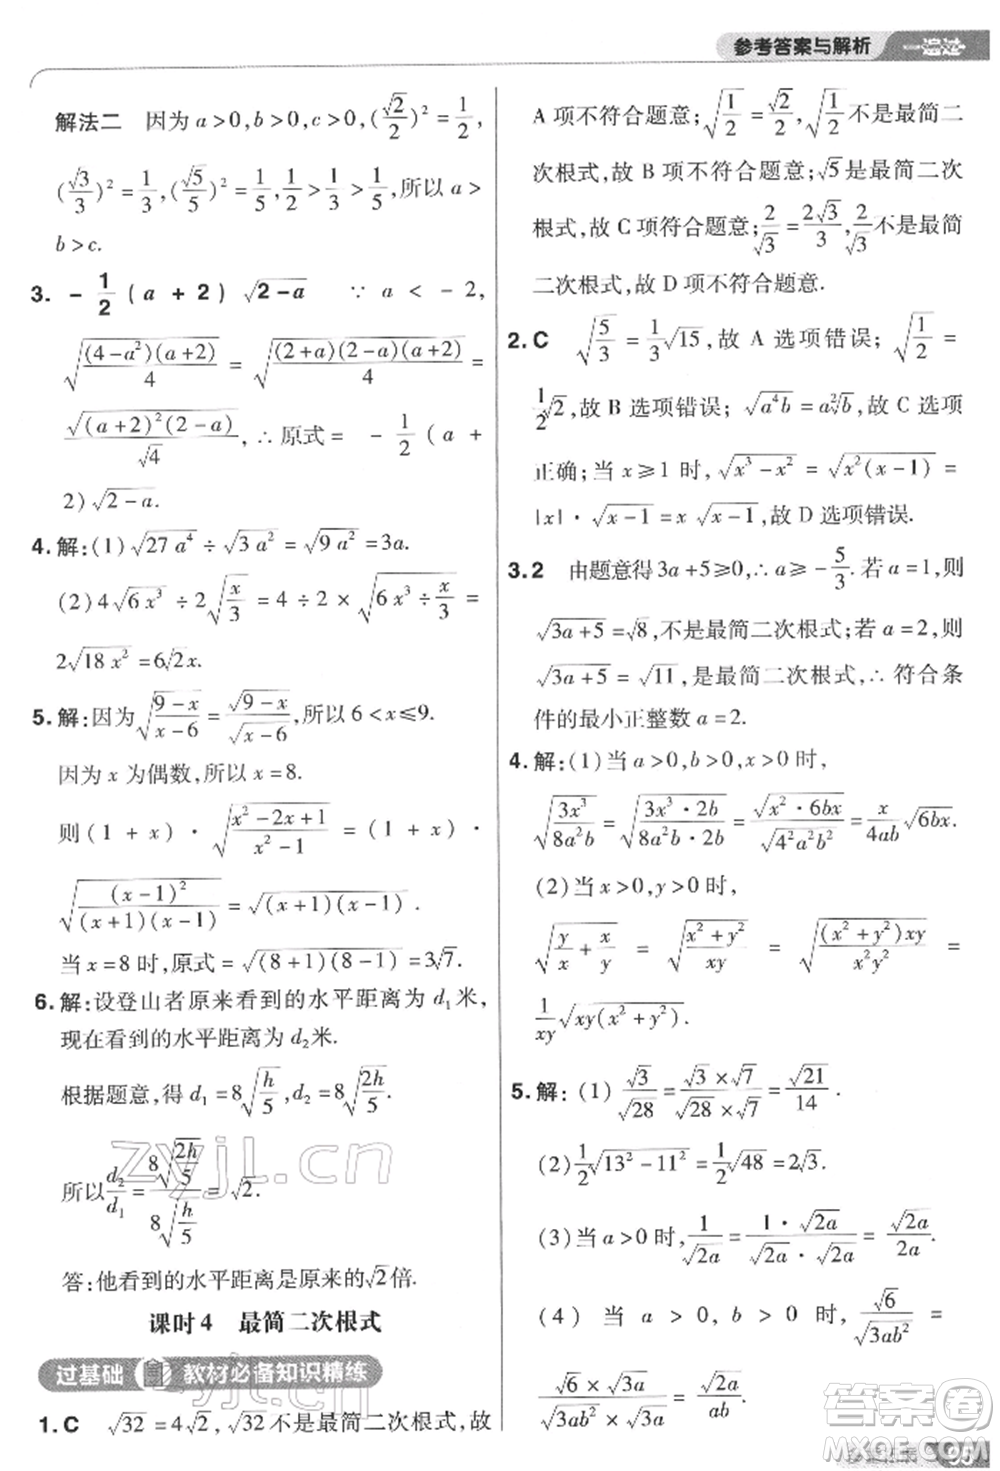 参考答案与解析 一遍过
解法二 因为 a>0,b>0,c>0,(√2/2)²=1/2,
(√3/3)²=1/3,(√5/5)²=1/5,1/2>1/3>1/5,所以 a>
b>c.
3. -1/2(a+2)√(2-a) ∵ a<-2,
√((4-a²)(a+2)/4) = √((2+a)(2-a)(a+2)/4) =
√((a+2)²(2-a))/√4, ∴ 原式 = -1/2(a+
2)√(2-a).
4.解:(1)√(27a⁴)÷√(3a²)=√(9a²)=3a.
(2)4√(6x³)÷2√(x/3)=4÷2×√(6x³÷x/3)=
2√(18x²)=6√2x.
5.解:因为√((9-x)/(x-6))=√(9-x)/√(x-6),所以 6<x≤9.
因为 x 为偶数,所以 x=8.
则(1+x)·√((x²-2x+1)/(x²-1))=(1+x)·
√((x-1)²/((x+1)(x-1)))=√((x+1)(x-1)).
当 x=8 时,原式=√((8+1)(8-1))=3√7.
6.解:设登山者原来看到的水平距离为 d₁米,
现在看到的水平距离为 d₂米.
根据题意,得 d₁=8√(h/5),d₂=8√(2h/5).
所以 d₂/d₁=8√(2h/5)/8√(h/5)=√2.
答:他看到的水平距离是原来的√2倍.
课时4 最简二次根式
过基础 教材必备知识精练
1.C √32=4√2,√32不是最简二次根式,故
A 项不符合题意;√(1/2)=√2/2,√(1/2)不是最简二
次根式,故 B 项不符合题意;√5是最简二次
根式,故 C 项符合题意;2/√3=2√3/3,2/√3不是最简
二次根式,故 D 项不符合题意.
2.C √(5/3)=1/3√15,故 A 选项错误;√(1/2)=
1/2√2,故 B 选项错误;√(a⁴b)=a²√b,故 C 选项
正确;当 x≥1 时,√(x³-x²)=√(x²(x-1))=
|x|·√(x-1)=x√(x-1),故 D 选项错误.
3.2 由题意得 3a+5≥0,∴a≥-5/3.若 a=1,则
√(3a+5)=√8,不是最简二次根式;若 a=2,则
√(3a+5)=√11,是最简二次根式,∴ 符合条
件的最小正整数 a=2.
4.解:(1)当 a>0,b>0,x>0 时,
√(3x³/8a²b)=√(3x³·2b/8a²b·2b)=√(x²·6bx)/√(4²a²b²)=x/4ab√(6bx).
(2)当 x>0,y>0 时,
√(y/x+x/y) = √((x²+y²)/xy) = √((x²+y²)xy/x²y²) =
1/xy√(xy(x²+y²)).
5.解:(1)√3/√28=√3×√7/√28×√7=√21/14.
(2)1/2√(13²-11²)=1/2√48=2√3.
(3)当 a>0 时,1/√(2a)=1·√(2a)/√(2a)·√(2a)=√(2a)/2a.
(4)当 a>0,b>0 时,√6/√(3ab²)=
√6×√(3a)/√(3ab²)×√(3a)=√(2a)/ab.
zyjl.cn
答案圈
MXQE.COM
95